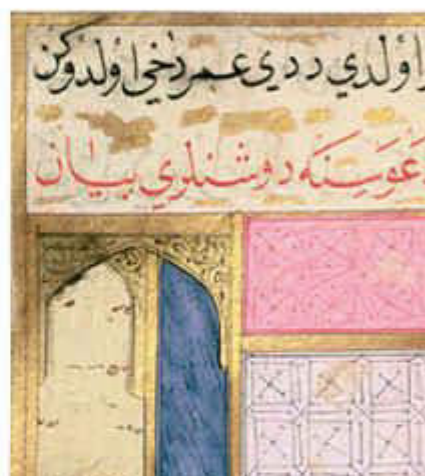 اولدي ددي عمر دخي اولدوكن
دعوسنه دوشنلري بيان